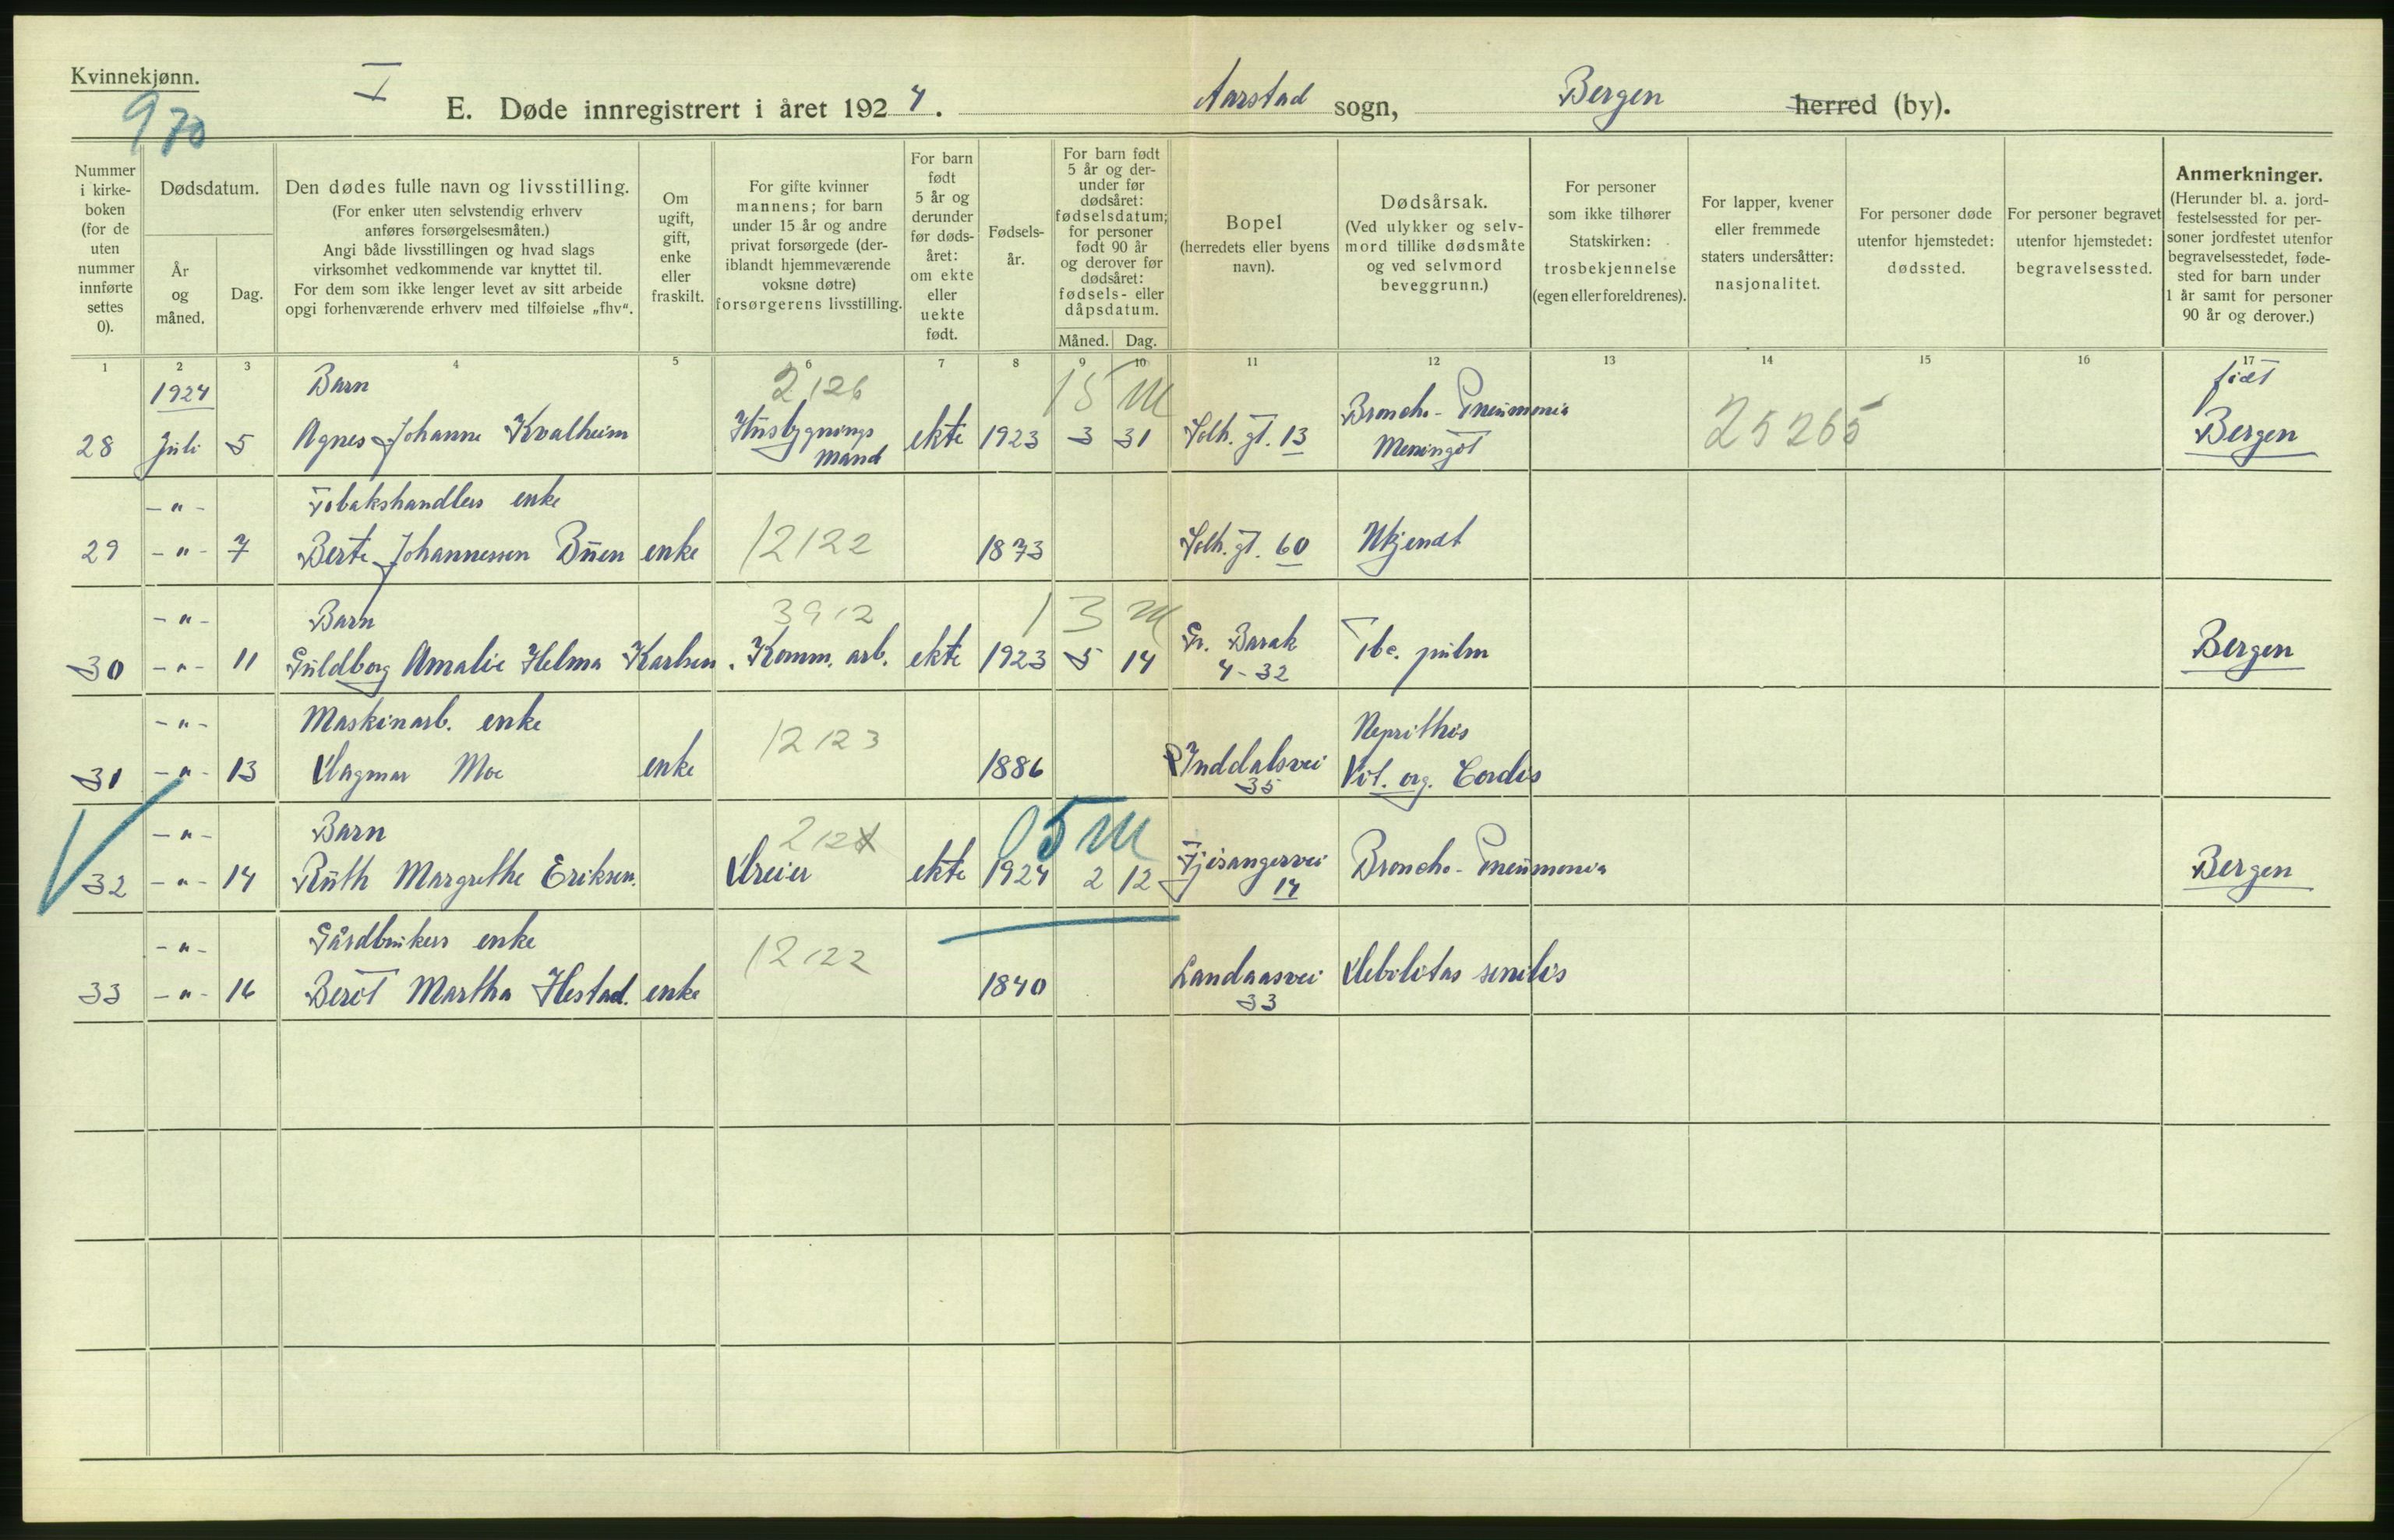 Kvinnekjønn.
970
I
E. Døde innregistrert i året 1924. Aarstad sogn, Bergen herred (by).
Nummer i kirkeboken (for de uten nummer innførte settes 0).
Dødsdatum.
År og måned.
Dag.
Den dødes fulle navn og livsstilling.
(For enker uten selvstendig erhverv anføres forsørgelsesmåten.)
Angi både livsstillingen og hvad slags virksomhet vedkommende var knyttet til.
For dem som ikke lenger levet av sitt arbeide opgi forhenværende erhverv med tilføielse „fhv“.
Om ugift, gift, enke eller fraskilt.
For gifte kvinner mannens; for barn under 15 år og andre privat forsørgede (deriblandt hjemmeværende voksne døtre) forsørgerens livsstilling.
For barn født 5 år og derunder før dødsåret: om ekte eller uekte født.
Fødselsår.
For barn født 5 år og derunder før dødsåret: fødselsdatum; for personer født 90 år og derover før dødsåret: fødsels- eller dåpsdatum.
Måned. Dag.
Bopel (herredets eller byens navn).
Dødsårsak.
(Ved ulykker og selvmord tillike dødsmåte og ved selvmord beveggrunn.)
For personer som ikke tilhører Statskirken: trosbekjennelse (egen eller foreldrenes).
For lapper, kvener eller fremmede staters undersåtter: nasjonalitet.
For personer døde utenfor hjemstedet: dødssted.
For personer begravet utenfor hjemstedet: begravelsessted.
Anmerkninger.
(Herunder bl. a. jordfestelsessted for personer jordfestet utenfor begravelsesstedet, fødested for barn under 1 år samt for personer 90 år og derover.)
1 2 3 4 5 6 7 8 9 10 11 12 13 14 15 16 17
1924 Barn 2126 15 M Broncho-Pneumonia født
28 Juli 5 Agnes Johanne Kvalheim Husbygnings mand ekte 1923 3 31 Solh. gt. 13 Meningit 25265 Bergen
-"- Tobakshandlers enke
29 -"- 7 Berte Johannessen Buen enke 12122 1873 Solh. gt. 60 Ukjendt
-"- Barn 3912 13 M
30 -"- 11 Guldborg Amalie Helma Karlsen. Komm. arb. ekte 1923 5 14 Gr. Barak 4-32 Tbc. pulm Bergen
-"- Maskinarb. enke 12123 Neprithis
31 -"- 13 Dagmar Moe enke 1886 Inddalsvei 35 Vit. org. Cordis
-"- Barn 212X 05 M
32 -"- 14 Ruth Margrethe Eriksen. Dreier ekte 1924 2 12 Fjøsangervei 14 Broncho-Pneumonia Bergen
-"- Gårdbrukers enke 12122
33 -"- 16 Berit Martha Hestad. enke 1840 Landaasvei 33 Debilitas senilis